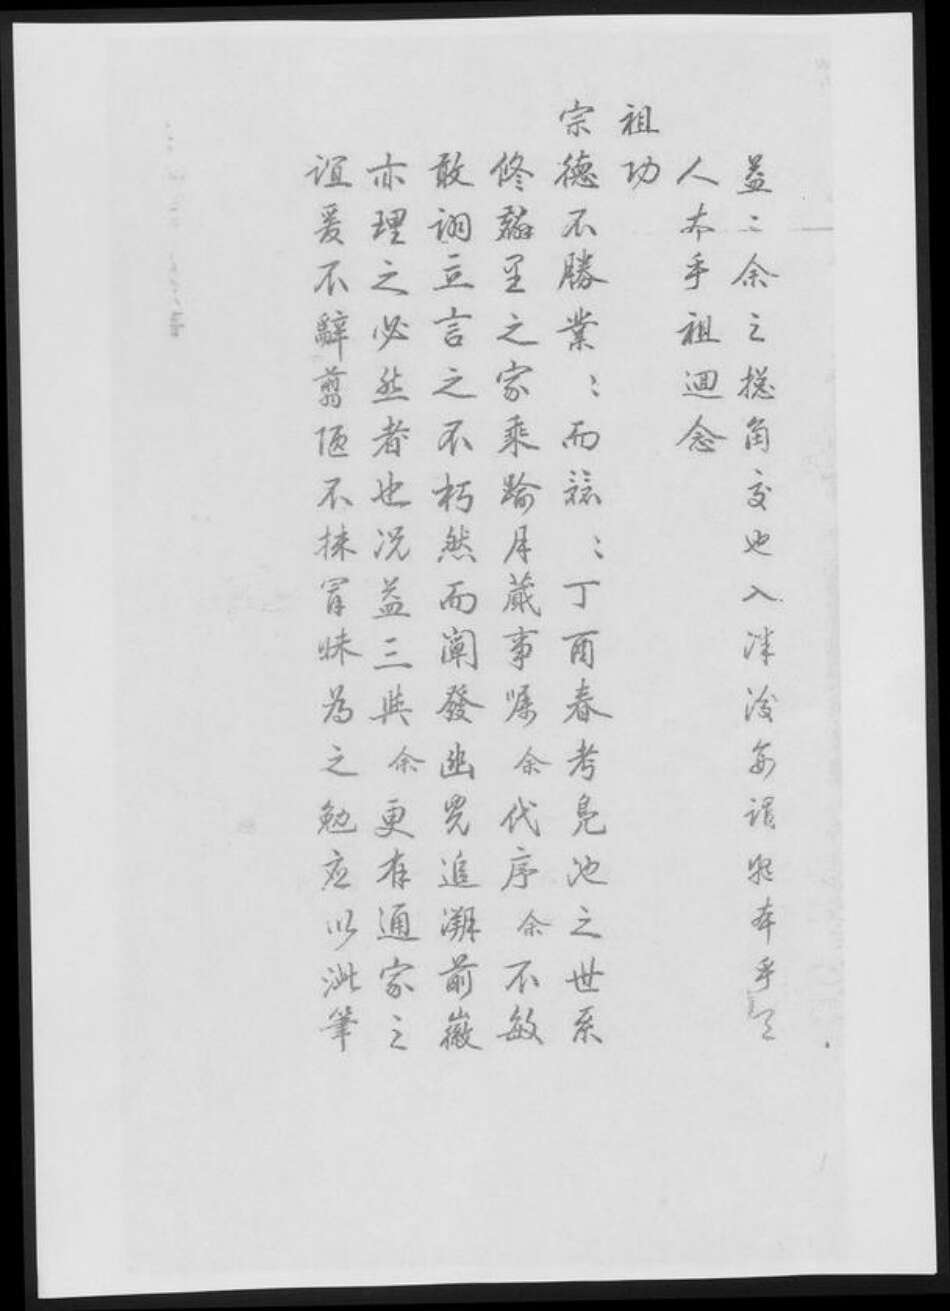 益二余之總角交也入泮後每謂物本乎天
人本乎祖迴念
祖功
宗德不勝業〻而兢〻丁酉春考鳧池之世系
修繇里之家乘踰月蕆事囑余代序余不敏
敢詡立言之不朽然而闡發幽光追溯前徽
亦理之必然者也況益三與余更有通家之
誼爰不辭翦陋不揀冒昧為之勉應以泚筆